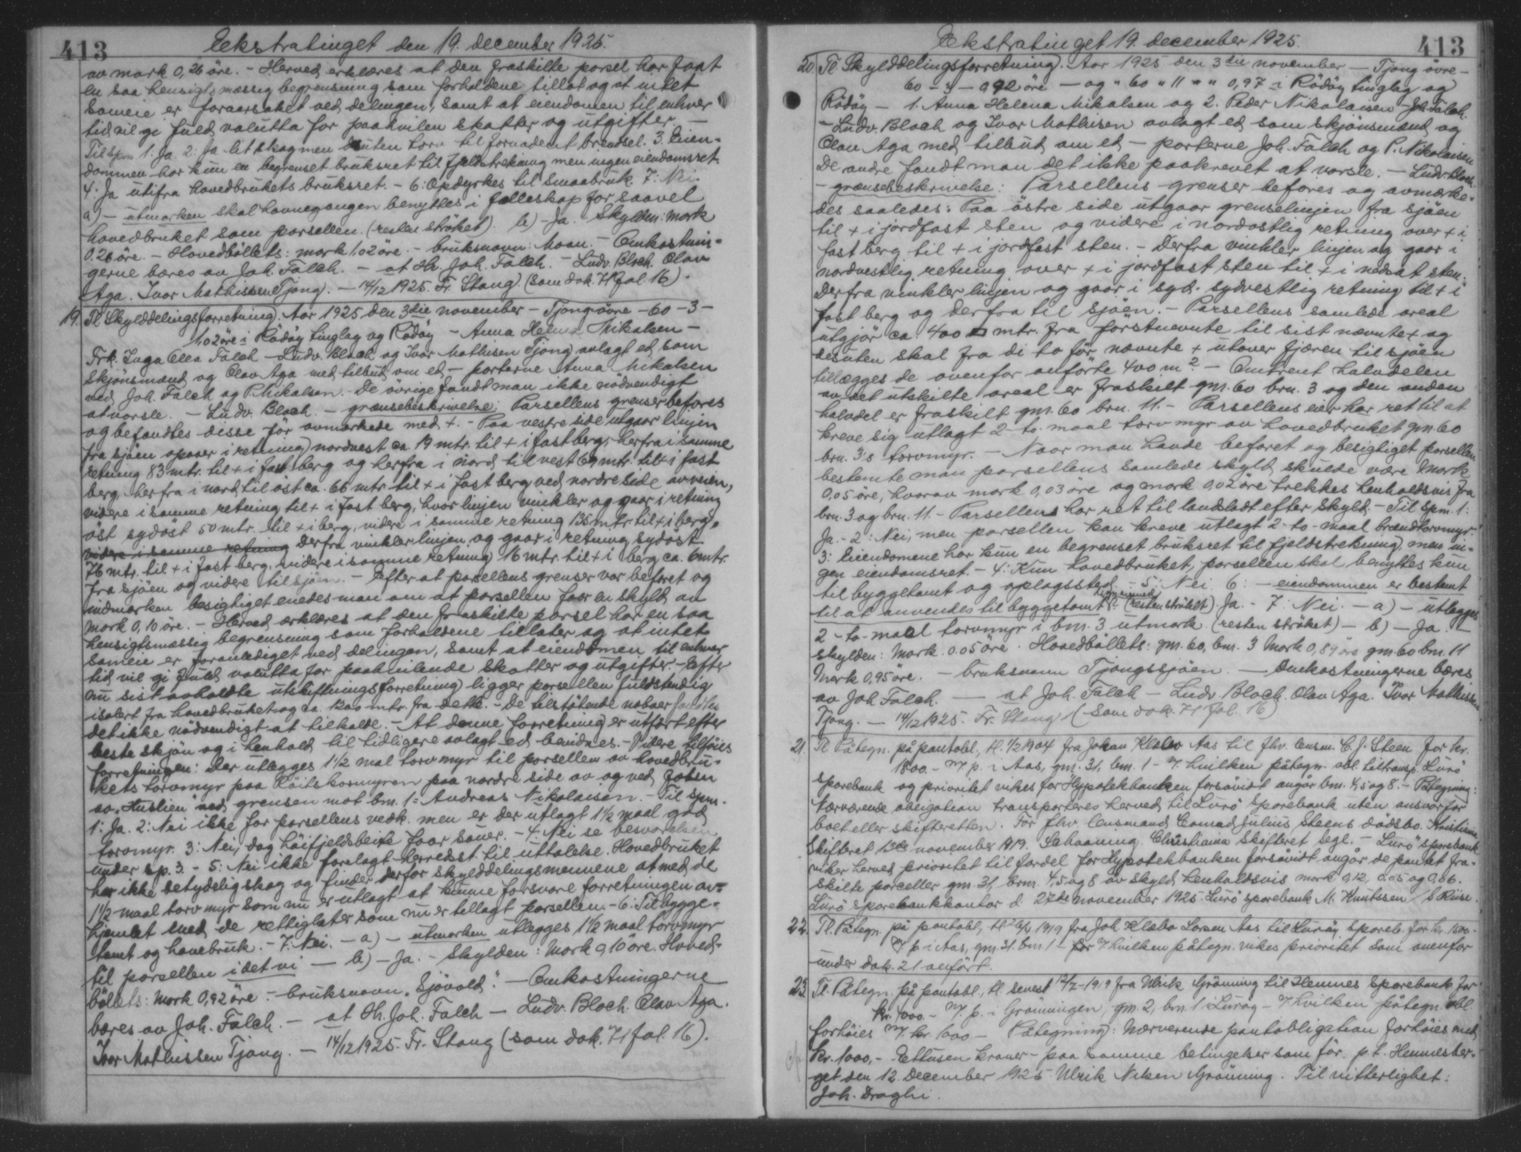 413
Ekstratinget den 19. december 1925.
av mark 0,26 öre. - Herved erklæres at den fraskilte parsel har faat
en saa hensigtsmæssig begrensning som forholdene tillot og at intet
someie er foraarsaket ved delingen, samt at eiendomen til enhver
tid vil gi fuld valutta for paahvilen skatter og utgifter. -
Til spm 1. Ja 2. Ja litt skog men uten torv til fornødent brændsel. 3. Eien-
dommen har kun en begrenset bruksret til fjeldstrekning men ingen eiendomsret
4. Ja utifra hovedbrukets bruksret. - 6. Opdyrkes til smaabruk. 7: Nei
a) - utmarken skal havnegangen benyttes i fælleskap for saavel
hovedbruket som parsellen (resten strøket) b) - Ja. Skylden: mark
0.26 öre. - Hovedböllets: mark 1.02 öre - bruksnavn: Moan. - Omkostnin-
gerne bæres av Joh. Falch. - at Hr. Joh. Falch. - Ludv. Bloch. Olav
Aga. Ivar Mathissen Tjong. - 14/12 1925. Fr. Stang (som dok. 71 fol 16).
19. Tl. Skylddelingsforretning. Aar 1925 den 3die november - Tjong övre - 60 - 3 -
1,02 öre i Rödöy tinglag og Rödöy - Anna Helena Mikalsen -
Frk. Inga Olea Falch - Ludv. Bloch og Ivar Mathisen Tjong avlagt ed som
skjönsmænd og Olav Aga med tilbud om ed - parterne Anna Mikalsen
ved Joh. Falch og P. Nikalsen. De övrige fandt man ikke nödvendigt
at varsle. - Ludv. Bloch. - grænsebeskrivelse: Parsellens grenser befores
og befandtes disse för avmerkede med +. - Paa vestre side utgaar linjen
fra sjöen opover i retning nordvest ca 19 mtr. til + i fast berg, herfra i samme
retning 83 mtr. til + i fast berg og herfra i nord til vest 69 mtr. til + i fast
berg. herfra i nord til öst ca. 66 mtr. til + i fast berg ved nordre side av veien,
videre i samme retning til + i fast berg, hvor linjen vinkler og gaar i retning
öst sydöst 50 mtr. til + i berg, videre i samme retning 125 mtr til + i berg.
videre i samme retning derfra vinkler linjen og gaar i retning sydöst
76 mtr. til + i fast berg, videre i samme retning 16 mtr til + i berg ca. 6 mtr.
fra sjöen og videre til sjöen. - Efter at parsellens grenser var befaret og
indmarken besigtiget enedes man om at parsellen faar en skyld av
mark 0,10 öre. - Herved erklæres at den fraskilte parsel har en saa
hensigtsmæssig begrensning som forholdene tillater og at intet
someie er foranlediget ved delingen, samt at eiendomen til enhver
tid vil gi fuld valutta for paahvilende skatter og utgifter. - Efter
nu sist avholdte utskiftningsforretning ligger parsellen fuldstendig
isolert fra hovedbruket og ca 1200 mtr. fra dette. - De tilstötende naboer fandtes
det ikke nödvendigt at tilkalde. - At denne forretning er utfört efter
beste skjön og i henhold til tidligere avlagt ed bevidnes. - Videre tilföies
forretningen: Der utlegges 1½ mal torvmyr til parsellen av hovedbru-
kets torvmyr paa nordre side av og ved
grensen mot bm. 1: Andreas Nikolaisen. - Til spm.
1: Ja. 2: Nei ikke for parsellens vedk. men er der utlagt 1½ maal god
torvmyr. 3: Nei, dog höifjeldsbeite faar sauer. - 4. Nei se besvarelsen
under sp. 3. - 5. Nei ikke forelagt herredsst. til uttalelse. Hovedbruket
har ikke betydelig skog og finder derfor skylddelingsmennene at med de
1½ maal torvmyr som nu er utlagt at kunne forsvare forretningen av-
hændet med de rettigheter som nu er tillagt parsellen. - 6. Til bygge-
tomt og havebruk. - 7. Nei. - a) - utmarken utlegges 1½ maal torvmyr
til parsellen idet vi - b) - Ja: - Skylden: Mark 0,10 öre. Hoved-
bölets: Mark 0,92 öre - bruksnavn "Sjövold". - Omkostningerne
bæres av Joh. Falch. - at Hr. Joh. Falch - Ludv. Bloch. Olav Aga.
Ivar Mathissen Tjong. - 14/12 1925. Fr. Stang (som dok. 71 fol. 16).
Ekstratinget 19. december 1925.
413
20. Tl. Skylddelingsforretning. Aar 1925 den 3die november - Tjong övre -
60 - 3 - 0,92 öre - og " 60 " 11 " " 0,97 i Rödöy tinglag og
Rödöy - 1. Anna Helena Mikalsen og 2. Peder Nikolaisen - Joh. Falch.
- Ludv. Bloch og Ivar Mathisen avlagt ed som skjönsmænd og
Olav Aga med tilbud om ed - parterne Joh. Falch og P. Nikolaisen
De andre fandt man det ikke paakrevlt at varsle. - Ludv. Bloch.
- grænsebeskrivelse: Parsellens grenser befores og avmærke-
des saaledes: Paa östre side utgaar grenselinjen fra sjöen
til + i jordfast sten og videre i nordostlig retning over + i
fast berg til + i jordfast sten. - Derfra vinkler linjen og gaar i
nordvestlig retning over + i jordfast sten til + i nedsat sten.
Derfra vinkler linjen og gaar i syd-sydvestlig retning til + i
fast berg og derfra til sjöen. - Parsellens samlede areal
utgjör ca 400 □ mtr. Fra förstnevnte til sist nævnte + og
desuten skal fra di to för nævnte + utover fjæren til sjöen
tillægges de ovenfor anförte 400 m². - Omtrent halvdelen
av det utskilte areal er fraskilt gm. 60 brn. 3 og den anden
halvdel er fraskilt gm. 60 brn. 11. - Parsellens eier har ret til at
kreve sig utlagt 2 - to - maal torvmyr av hovedbruket gm 60
brn. 3's torvmyr. - Naar man havde befaret og besigtiget parsellen
bestemte man parsellens samlede skyld skulde være Mark
0,05 öre, hvorav mark 0,03 öre og mark 0,02 öre trekkes henholdsvis fra
brn. 3 og brn. 11. - Parsellens har ret til landslodt efter skyld. - Til spm. 1:
Ja. - 2: Nei, men parsellen kan kreve utlagt 2 - to - maal brændtorvmyr.
3: Eiendomene har kun en begrenset bruksret til fjeldstrekning, men in-
gen eiendomsret. - 4: Kun hovedbruket, parsellen skal benyttes kun
til byggetomt og oplagssted. - 5: Nei 6: - eiendommen er bestemt
til at anvendes til byggetomt (resten strøket). Ja. - 7: Nei. - a) - utlegges
2 - to - maal torvmyr i brn. 3 utmark (resten strøket) - b) - Ja. -
Skylden: Mark 0.05 öre. Hovedbøllets: gm. 60, brn. 3 Mark 0,89 öre gm 60 brn. 11
Mark 0,95 öre. - bruksnavn Tjongssjöen. - Omkostningerne bæres
av Joh. Falch. - at Joh. Falch - Ludv. Bloch. Olav Aga. Ivar Mathissen
Tjong. - 14/12 1925. Fr. Stang (som dok. 71 fol. 16)
21. Tl. Påtegn. på pantobl. tl. ½ 1904 fra Johan Klæbo Aas til fhv. lensm. C. J. Steen for kr.
1800.- m/ p. i Aas, gm. 31, brn. 1 - v. hvilken påtegn. obl. tiltransp. Lurö
sparebank og prioritet vikes for Hypotekbanken forsåvidt angår brn. 4, 5 og 8. - Påtegning:
Nærværende obligation transporteres herved til Lurö Sparebank uten ansvar for
boet eller skifteretten. For fhv. lensmand Conrad Julius Steens dödsbo. Kristiania
Skifteret 13de november 1919. Schaaning Christiania skifteret segl. - Lurö sparebank
viker herved prioritet til fordel for Hypotekbanken forsåvidt angår de pantet fra-
skilte parceller gm. 31, brnr. 4, 5 og 8 av skyld henholdsvis mark 0,12, 0,05 og 0,06.
Lurö sparebankkontor d 27de november 1925. Lurö sparebank M. Knutssen / S Riise.
22. Tl. Påtegn. på pantobl. tl. 1919 fra Joh Klæbo Lorsen Aas til Luröy spareb. for kr. 1500.-
m/ p. i Aas, gm. 31 brn. 1 - för v/ hvilken påtegn. vikes prioritet som ovenfor
under dok. 21 anfört.
23. Tl. Påtegn. på pantobl. tl. senest 1919 fra Ulrik Grönning til Hemnes Sparebank for
kr. 4000.- m/ p. i Grönningen, gm. 2, brn. 1. Luröy - v/ hvilken påtegn. obl.
forhöies m/ kr. 1000 - Påtegning: Nærværende pantobligation forhöies med
kr. 1000,- Ettusen kroner - paa samme betingelser som för. p. t. Hemnesber-
get den 12. December 1925 Ulrik Nilsen Grönning. Til vitterlighet:
Joh. Draghi.